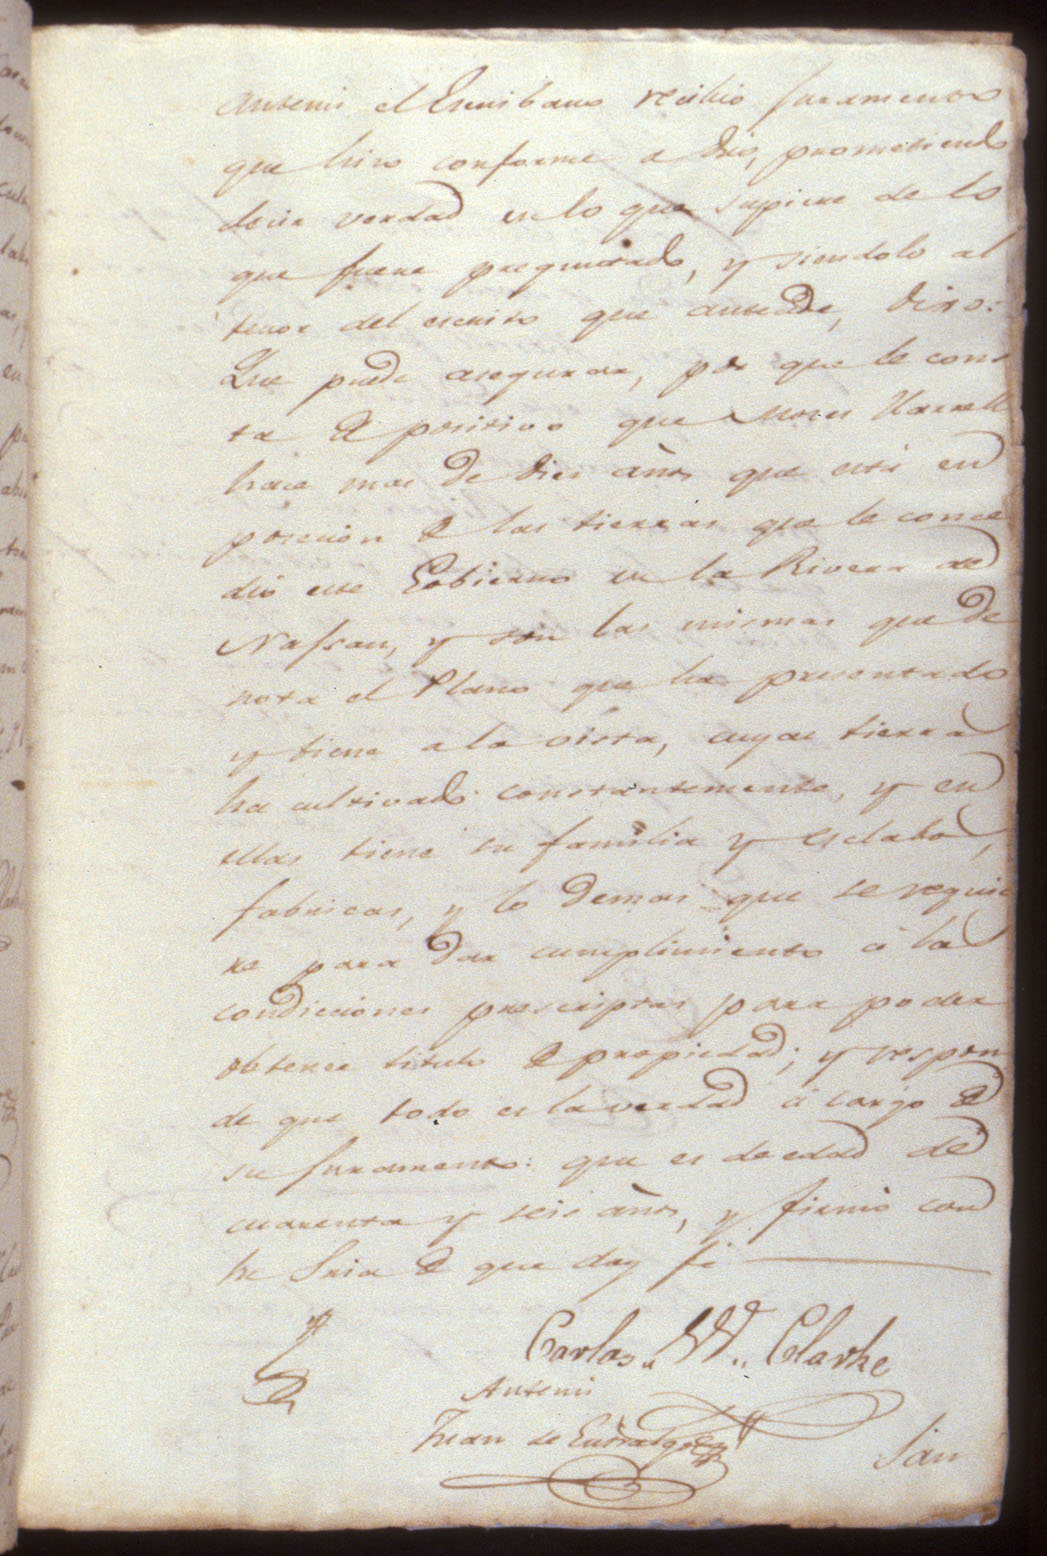 antemi el Escribano recibio juramento
que hiso conforme a Dio, prometiendo
decir verdad en lo que supiere de lo
que fuere preguntado, y siendolo al
tenor del escrito que antecede, Dixo:
Que puede asegurar, por que le cons
ta de positivo que Moses Harrell
hace mas de Dies años que está en
posecion de las tierras que le conce
dió este Gobierno en la Rivera de
Nassau, y son las mismas que de
nota el Plano que ha presentado
y tiene a la vista, cuyas tierras
ha cultivado constantemente, y en
ellas tiene su familia y esclabos,
fabricas, y lo Demas que se requie
re para Dar cumplimiento á las
condicciones prescriptas para poder
obtener titulo de propiedad; y respon
de que todo es la verdad á cargo de
su juramento: que es de edad de
cuarenta y seis años, y firmó con
he Sria de que doy fé
Carlos W. Clarke
Antemi
Juan de Entralgo
San